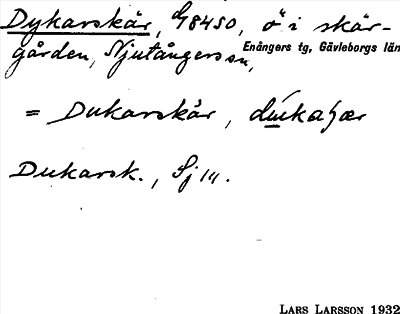 Dykarskär, G8450, ö i skär-
gården, Njutångers sn,
Enångers tg, Gävleborgs län
= Dukarskär,
Dukarsk., Sj 111.
LARS LARSSON 1932